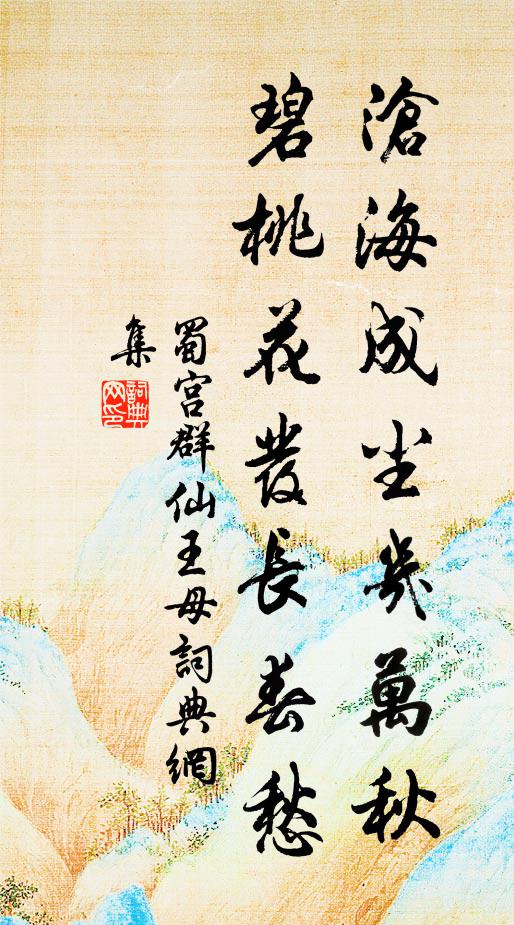 滄海成尘幾萬秋
碧桃花發長春愁
蜀宫群仙王母詞典網
集
詞典
网印